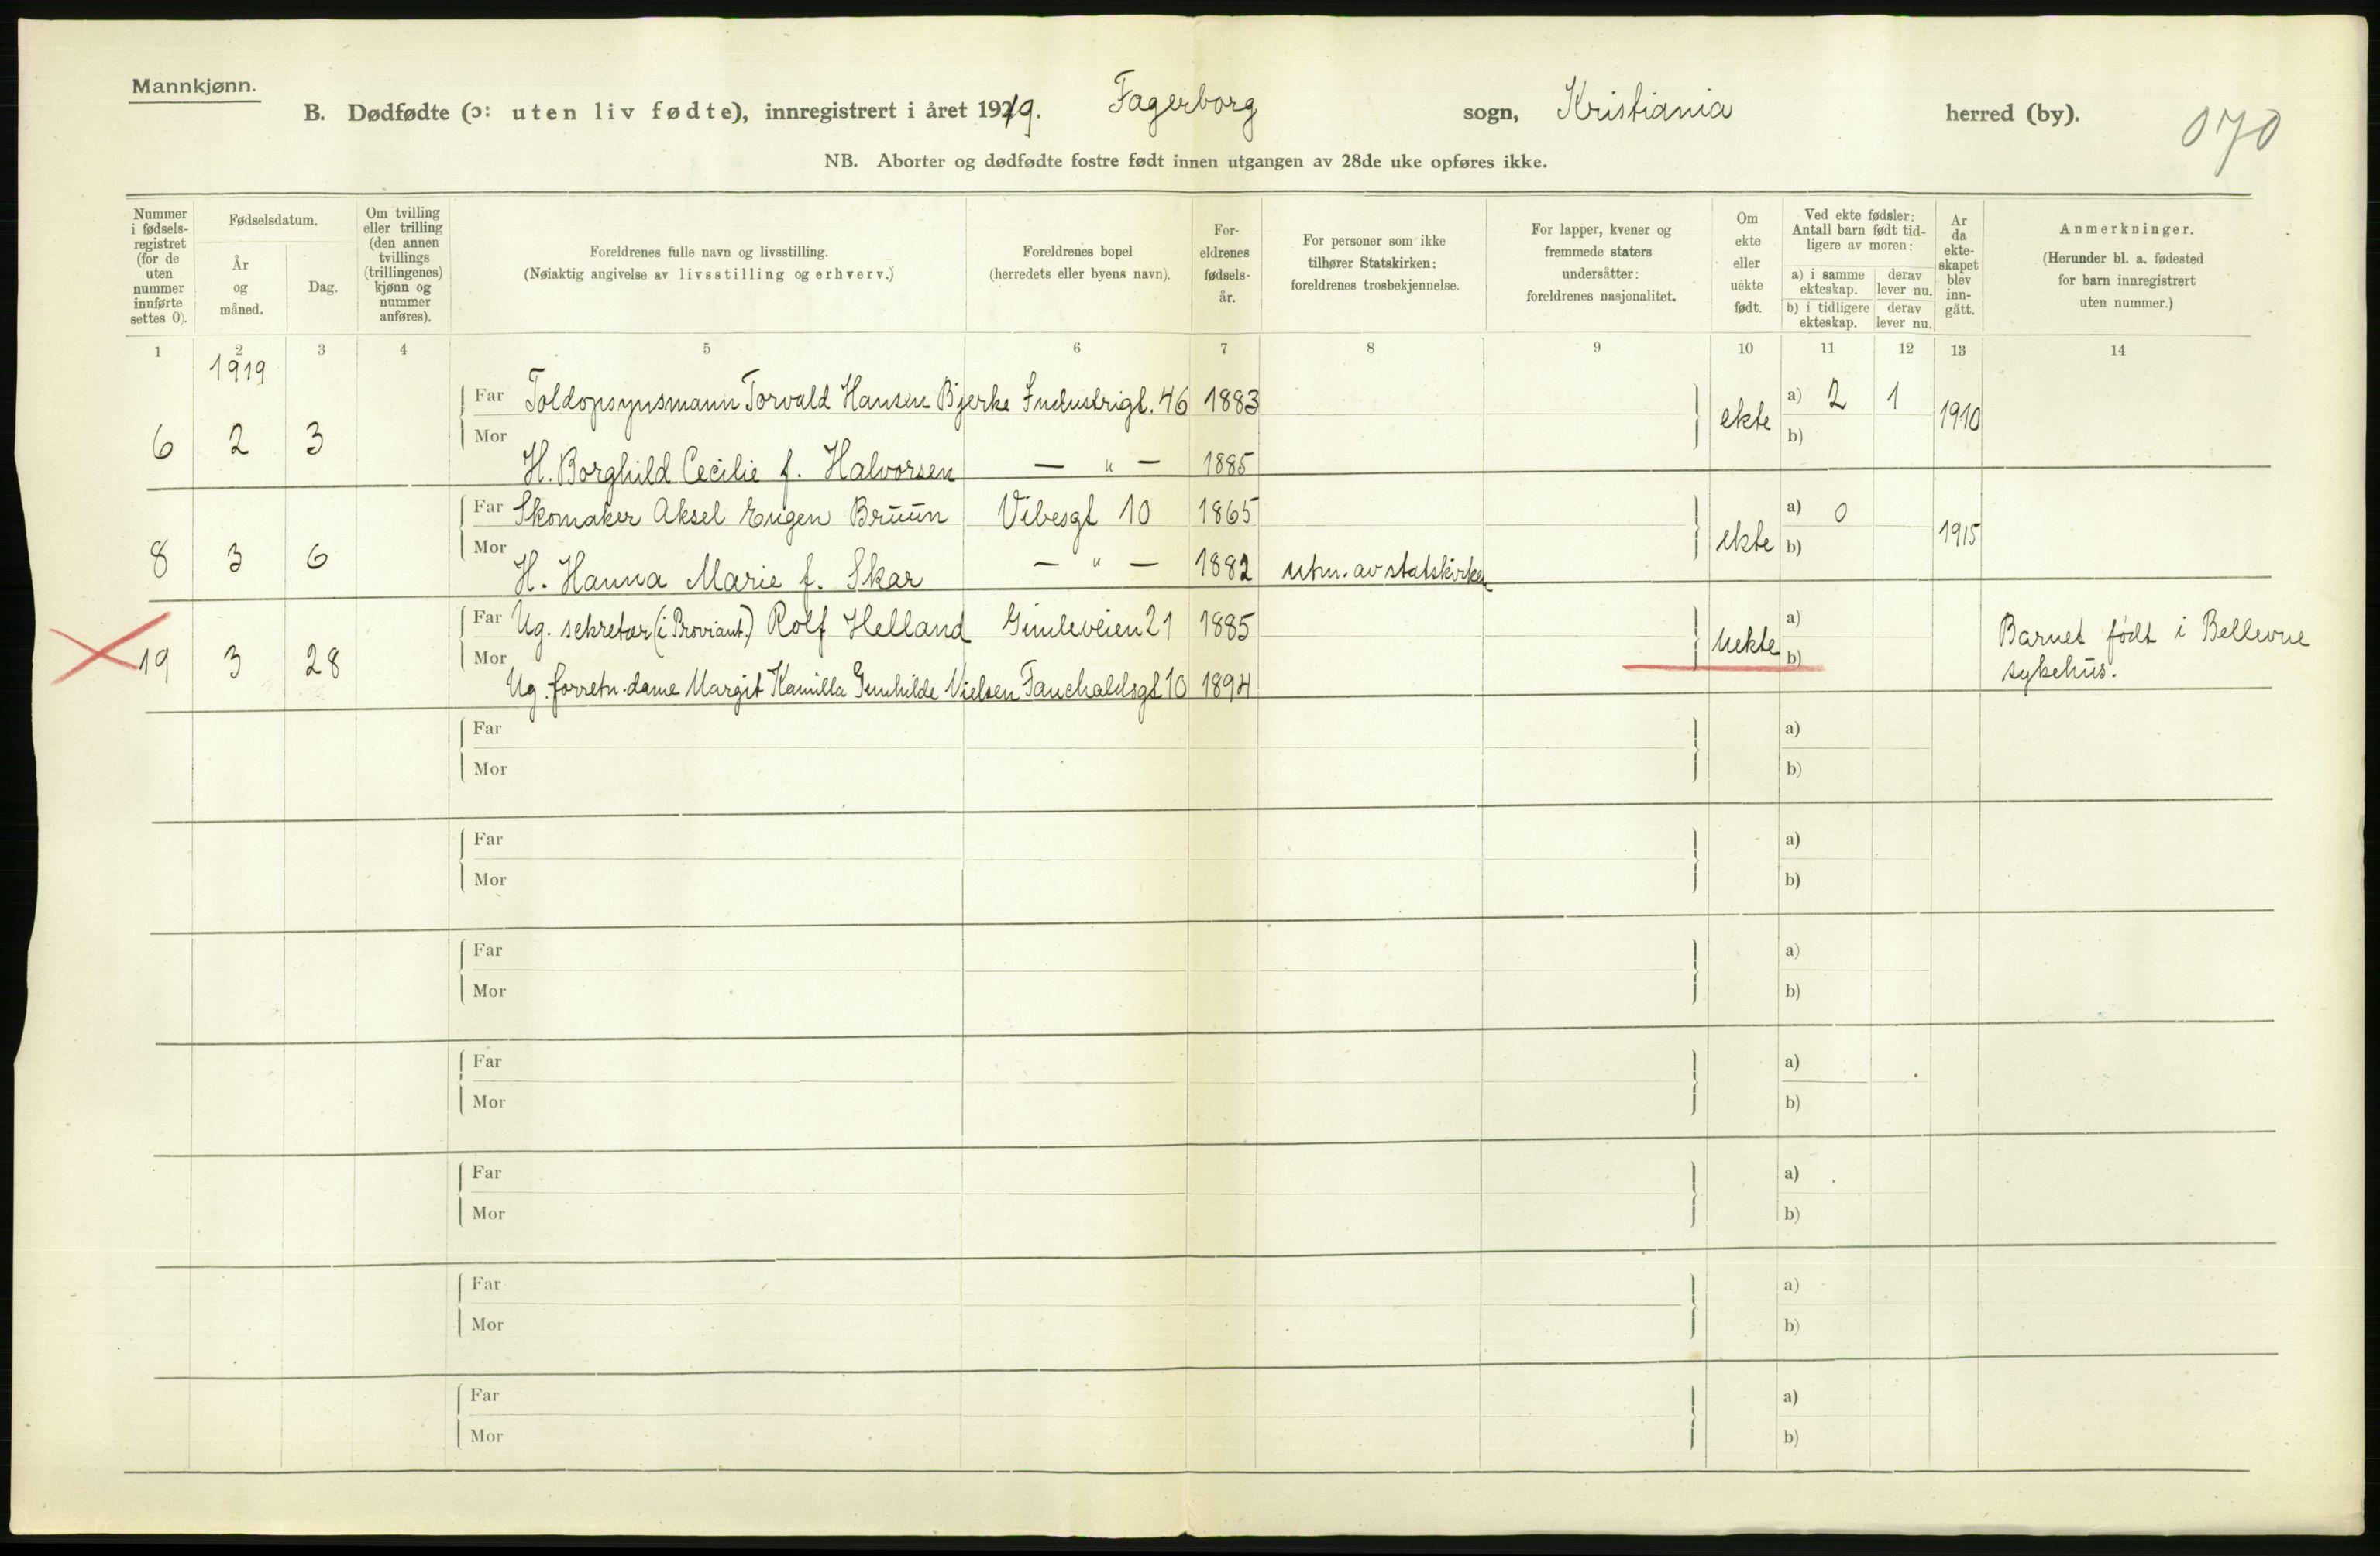 Mannkjønn.
B. Dødfødte (ɔ: uten liv fødte), innregistrert i året 1919. Fagerborg sogn, Kristiania herred (by).
070
NB. Aborter og dødfødte fostre født innen utgangen av 28de uke opføres ikke.
Nummer i fødsels-registret (for de uten nummer innførte settes 0).
Fødselsdatum.
År og måned.
Dag.
Om tvilling eller trilling (den annen tvillings (trillingenes) kjønn og nummer anføres).
Foreldrenes fulle navn og livsstilling.
(Nøiaktig angivelse av livsstilling og erhverv.)
Foreldrenes bopel
(herredets eller byens navn).
For-eldrenes fødsels-år.
For personer som ikke tilhører Statskirken: foreldrenes trosbekjennelse.
For lapper, kvener og fremmede staters undersåtter: foreldrenes nasjonalitet.
Om ekte eller uekte født.
Ved ekte fødsler: Antall barn født tid-ligere av moren:
a) i samme ekteskap.
derav lever nu.
b) i tidligere ekteskap.
derav lever nu.
År da ekte-skapet blev inn-gått.
Anmerkninger.
(Herunder bl. a. fødested for barn innregistrert uten nummer.)
1 2 3 4 5 6 7 8 9 10 11 12 13 14
1919
Far Toldopsynsmann Torvald Hansen Bjerke Industrigt. 46 1883 a) 2 1
6 2 3 ekte 1910
Mor H. Borghild Cecilie f. Halvorsen — " — 1885 b)
Far Skomaker Aksel Eugen Bruun Vibesgt 10 1865 a) 0
8 3 6 ekte 1915
Mor H. Hanna Marie f. Skar — " — 1882 utm. av statskirken b)
Far Ug. sekretær (i Proviant.) Rolf Helland Gimleveien 21 1885 a)
19 3 28 Uekte Barnet født i Bellevue
sykehus.
Mor Ug. forretn.dame Margit Kamilla Gunhilde Nielsen Fauchaldsgt 10 1894 b)
Far a)
Mor b)
Far a)
Mor b)
Far a)
Mor b)
Far a)
Mor b)
Far a)
Mor b)
Far a)
Mor b)
Far a)
Mor b)